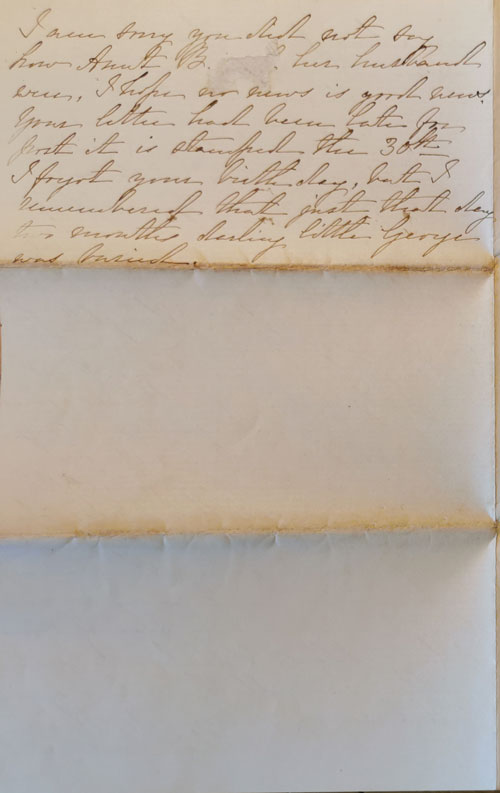 I am sorry you did not say
how Aunt B her husband
were, I hope no news is good news.
Your letter had been late for
post it is stamped the 30th
I forgot your birthday, but I
remembered that just that day
two months darling little George
was buried.